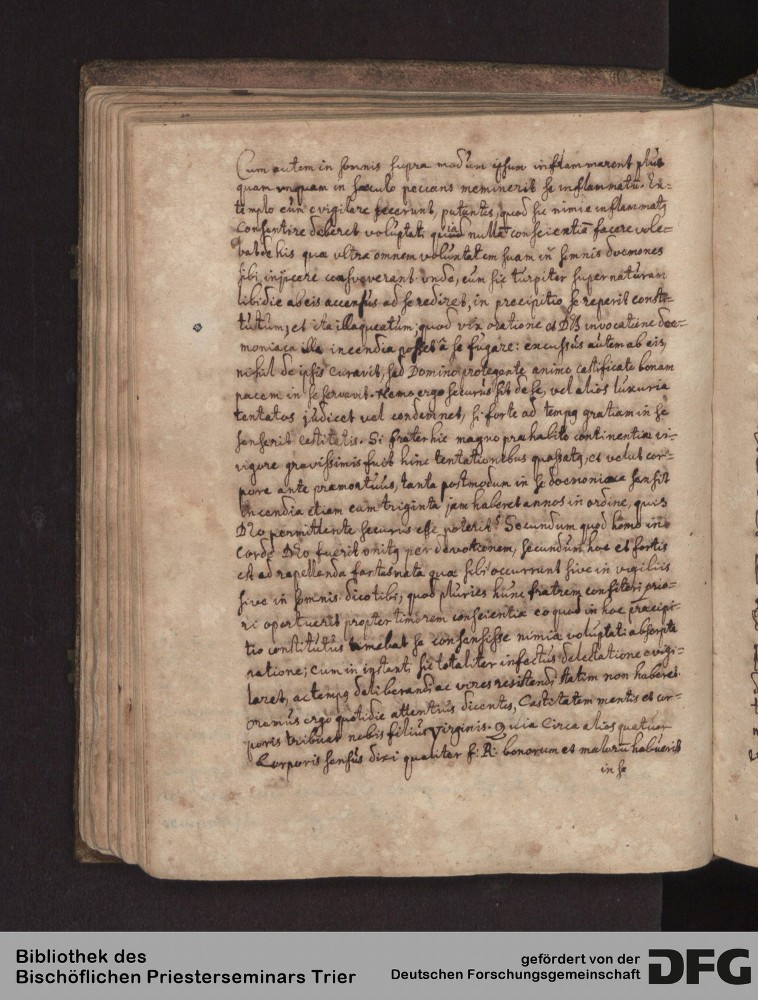 Cum autem in somnis supra modum ipsum inflammarent plus
quam unquam in sæculo peccans meminerit se inflammatū. Ex-
templo eum evigilare fecerunt, putantes, quod sic nimie inflammatq
consentire deberet voluptati qui nullā conscientiā facere vole-
bat de his quæ ultra omnem voluntatem suam in somnis dæmones
sibi injicere consueverant unde, cum sic turpiter supernaturam
libidie ab eis accensus ad se rediret, in precipitio se reperit consti-
tutum, et ita illaqueatum, quod vix oratione et Dei invocatione dæ-
moniaca illa incendia posset â se fugare: excussus autem ab eis,
nihil de ipsis curavit, sed Domino protegente animo castificato bonam
pacem in se servavit. Nemo ergo securus sit de se, vel alios luxuria
tentatos judicet vel condemnet, si forte ad tempq gratiam in se
senserit castitatis. Si frater hic magno præhabito continentiæ ri-
vigore gravissimis fuit hinc tentationibus quassatq, et velut cor-
pore ante præmortuus, tanta postmodum in se dæmoniaca sensit
incendia etiam cum triginta jam haberet annos in ordine, quis
Deo permittente securus esse poterit? Secundum quod homo in
corde Deo fuerit unitq per devotionem, secundum hoc et fortis
est ad repellenda quæ sibi occurrunt sive in vigiliis
sive in somnis. dico tibi, quod pluries hunc fratrem confiteri prio-
ri oportuerit propter timorem conscientiæ eo quod in hoc præcipi-
tio constitutus timebat se consensisse nimia voluptati absorpta
ratione; cum in instanti sic totaliter infectus delectatione evigi-
laret, ac tempq deliberandi ac vires resistendi statim non haberet.
oramus ergo quotidie attentius dicentes, Castitatem mentis et cor-
poris tribuat nobis filius virginis. Quia circa alios quatuor
Corporis sensus dixi qualiter f: R: bonorum et malorū habuerit
in se
Bibliothek des
Bischöflichen Priesterseminars Trier
gefördert von der
Deutschen Forschungsgemeinschaft
DFG